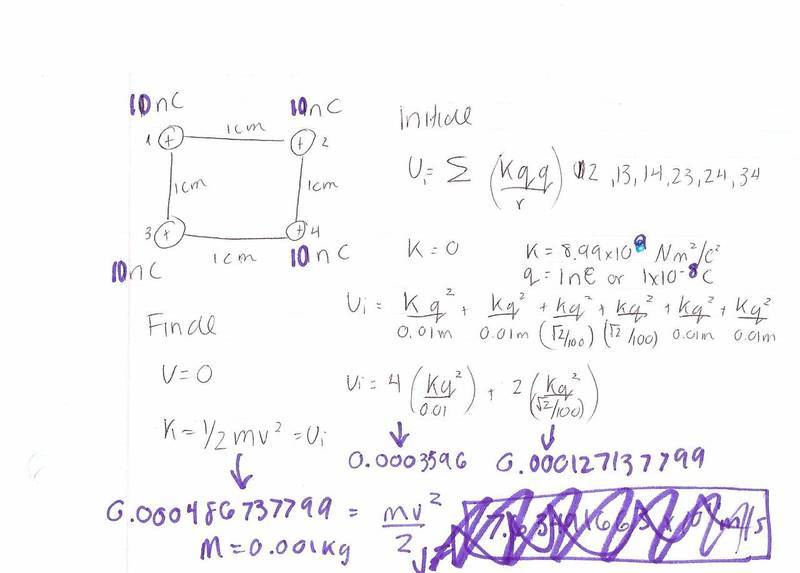 10nC 10nC
1cm
1 + + 2
1cm 1cm
3 + + 4
1cm
10nC 10nC
Initial
Ui = Σ (Kqq/r) 12, 13, 14, 23, 24, 34
K = 0
K = 8.99x10⁹ Nm²/C²
q = 1nC or 1x10⁻⁸C
Ui = Kq²/0.01m + Kq²/0.01m + Kq²/(√2/100) + Kq²/(√2/100) + Kq²/0.01m + Kq²/0.01m
Ui = 4 (Kq²/0.01) + 2 (Kq²/(√2/100))
0.0003596 0.000127137799
Final
U = 0
K = 1/2 mv² = Ui
0.000486737799 = mv²/2
m = 0.001kg